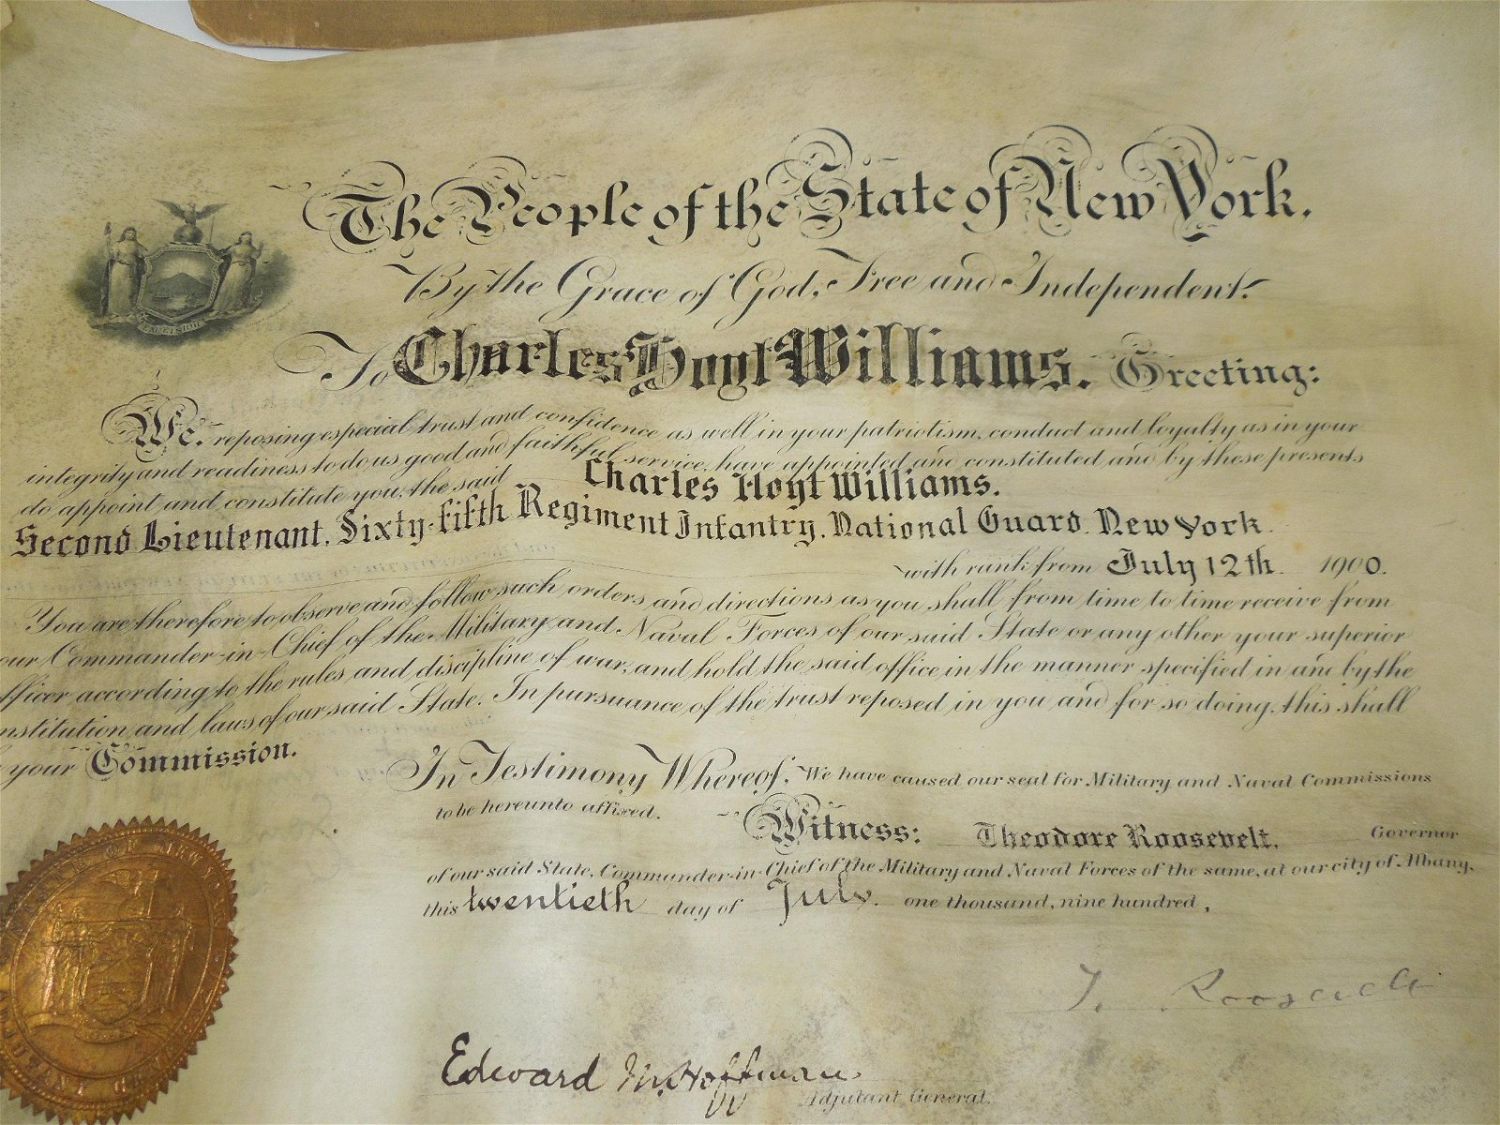 The People of the State of New York.
By the Grace of God, Free and Independent.
To Charles Hoyt Williams. Greeting:
We. reposing especial trust and confidence as well in your patriotism, conduct and loyalty as in your
integrity and readiness to do us good and faithful service, have appointed and constituted and by these presents
do appoint and constitute you, the said Charles Hoyt Williams.
Second Lieutenant, Sixty-fifth Regiment Infantry, National Guard, New York.
with rank from July 12th. 1900.
You are therefore to observe and follow such orders and directions as you shall from time to time receive from
our Commander-in-Chief of the Military and Naval Forces of our said State or any other your superior
fficer according to the rules and discipline of war, and hold the said office in the manner specified in and by the
nstitution and laws of our said State. In pursuance of the trust reposed in you and for so doing, this shall
your Commission.
In Testimony Whereof, We have caused our seal for Military and Naval Commissions
to be hereunto affixed.
Witness: Theodore Roosevelt, Governor
of our said State, Commander-in-Chief of the Military and Naval Forces of the same, at our city of Albany,
this twentieth day of July. one thousand, nine hundred,
T. Roosevelt
Edward M. Hoffman
Adjutant General.
EXCELSIOR
OF NEW YO